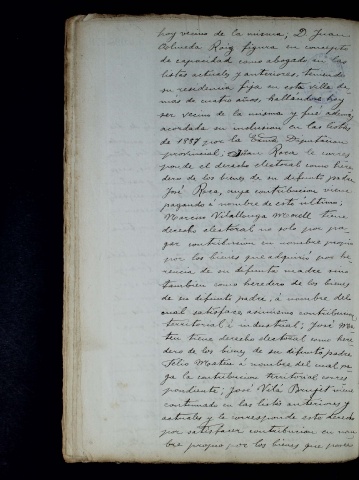 hoy vecino de la misma; D. Juan
Roig figura en concepto
de capacidad como abogado en las
listas actuales y anteriores, teniendo
su residencia fija en esta villa de
mas de cuatro años, hallándose hoy
ser vecino de la misma y fué además
acordada su inclusion en las listas
de por la Excma Diputacion
provincial; Juan Roca le corres
ponde el derecho electoral como here
dero de los bienes de su difunto padre
José Roca, cuya contribucion viene
pagando á nombre de este último;
Marcos Vilallonga Morell tiene
derecho electoral no solo por pa
gar contribucion en nombre propio
por los bienes que adquirió por he
rencia de su difunta madre sino
tambien como heredero de los bienes
de su difunto padre, á nombre del
cual satisface asimismo contribucion
territorial é industrial; José Ma
tiene derecho electoral como here
dero de los bienes de su difunto padre
á nombre del cual pa
ga la contribucion territorial corres
pondiente; José Vila viene
continuado en las listas anteriores y
actuales y le corresponde este derecho
por satisfacer contribucion en nom
bre propio por los bienes que posee